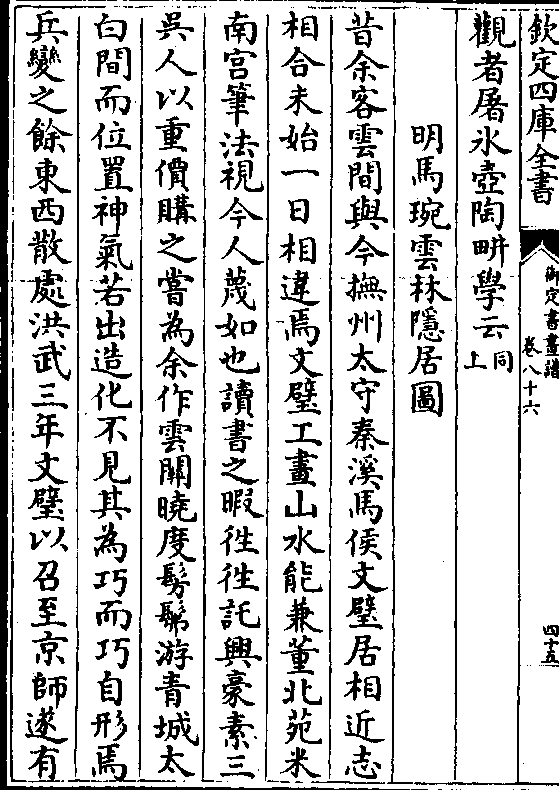 欽定四庫全書
御定書畫譜
卷八十六
四十五
觀者屠氷壺陶畊學云同上
明馬琬雲林隱居圖
昔余客雲間與今撫州太守秦溪馬侯文璧居相近志
相合未始一日相違焉文璧工畫山水能兼董北苑米
南宫筆法視今人蔑如也讀書之暇徃徃託興豪素三
吳人以重價購之嘗為余作雲關曉度髣髴游青城太
白間而位置神氣若出造化不見其為巧而巧自形焉
兵變之餘東西散處洪武三年文璧以召至京師遂有